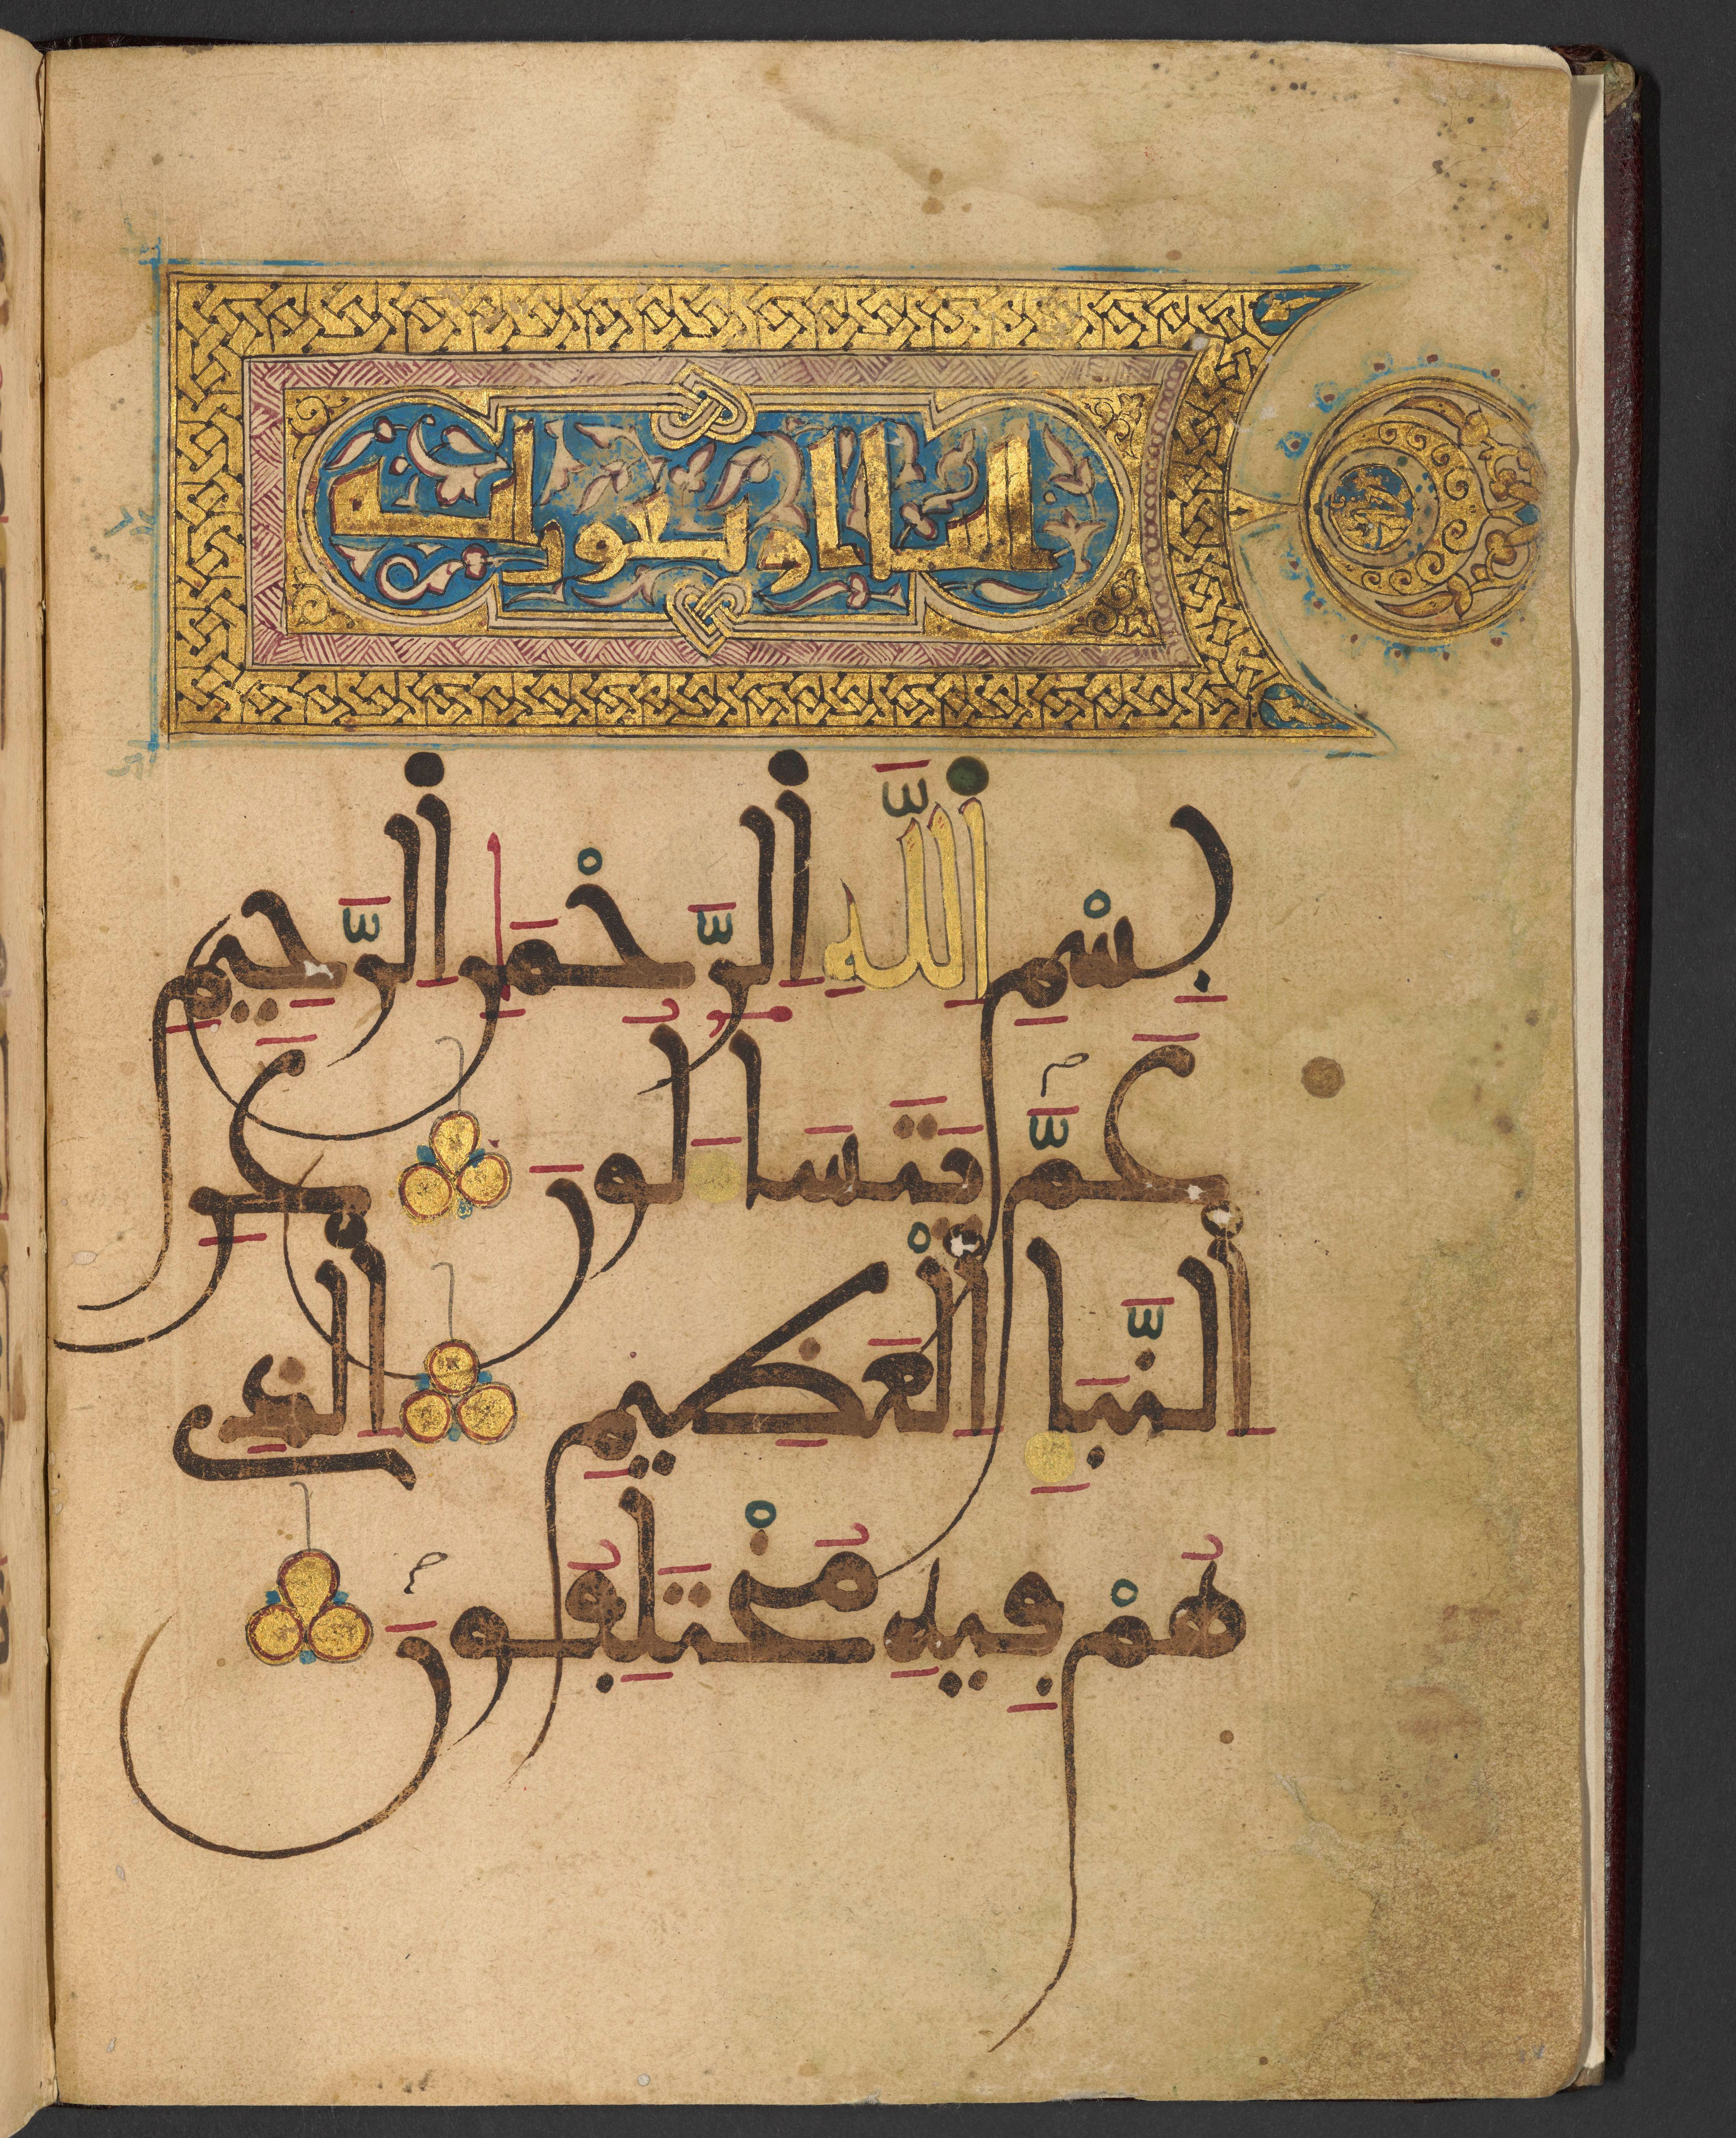 النبا اربعون اية
بِسْمِ اللَّهِ الرَّحْمَٰنِ الرَّحِيمِ
عَمَّ يَتَسَاءَلُونَ عَنِ
النَّبَإِ الْعَظِيمِ الَّذِي
هُمْ فِيهِ مُخْتَلِفُونَ